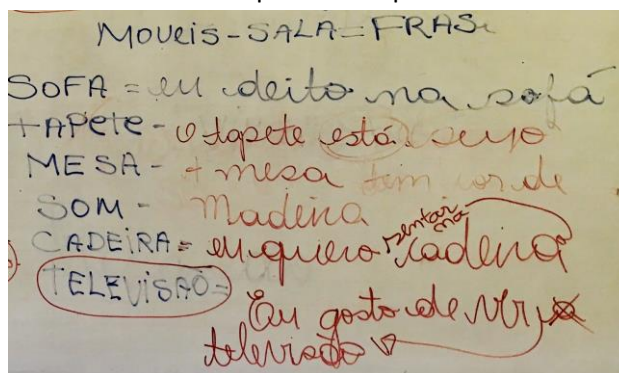 MOVEIS-SALA=FRAS
SOFA = eu deito na sofá
TAPETE - o tapete está sujo
MESA - + mesa tem cor de
SOM - Madeira
CADEIRA = eu quiero sentar na cadeira
TELEVISÃO =
Eu gosto de ver
televisão